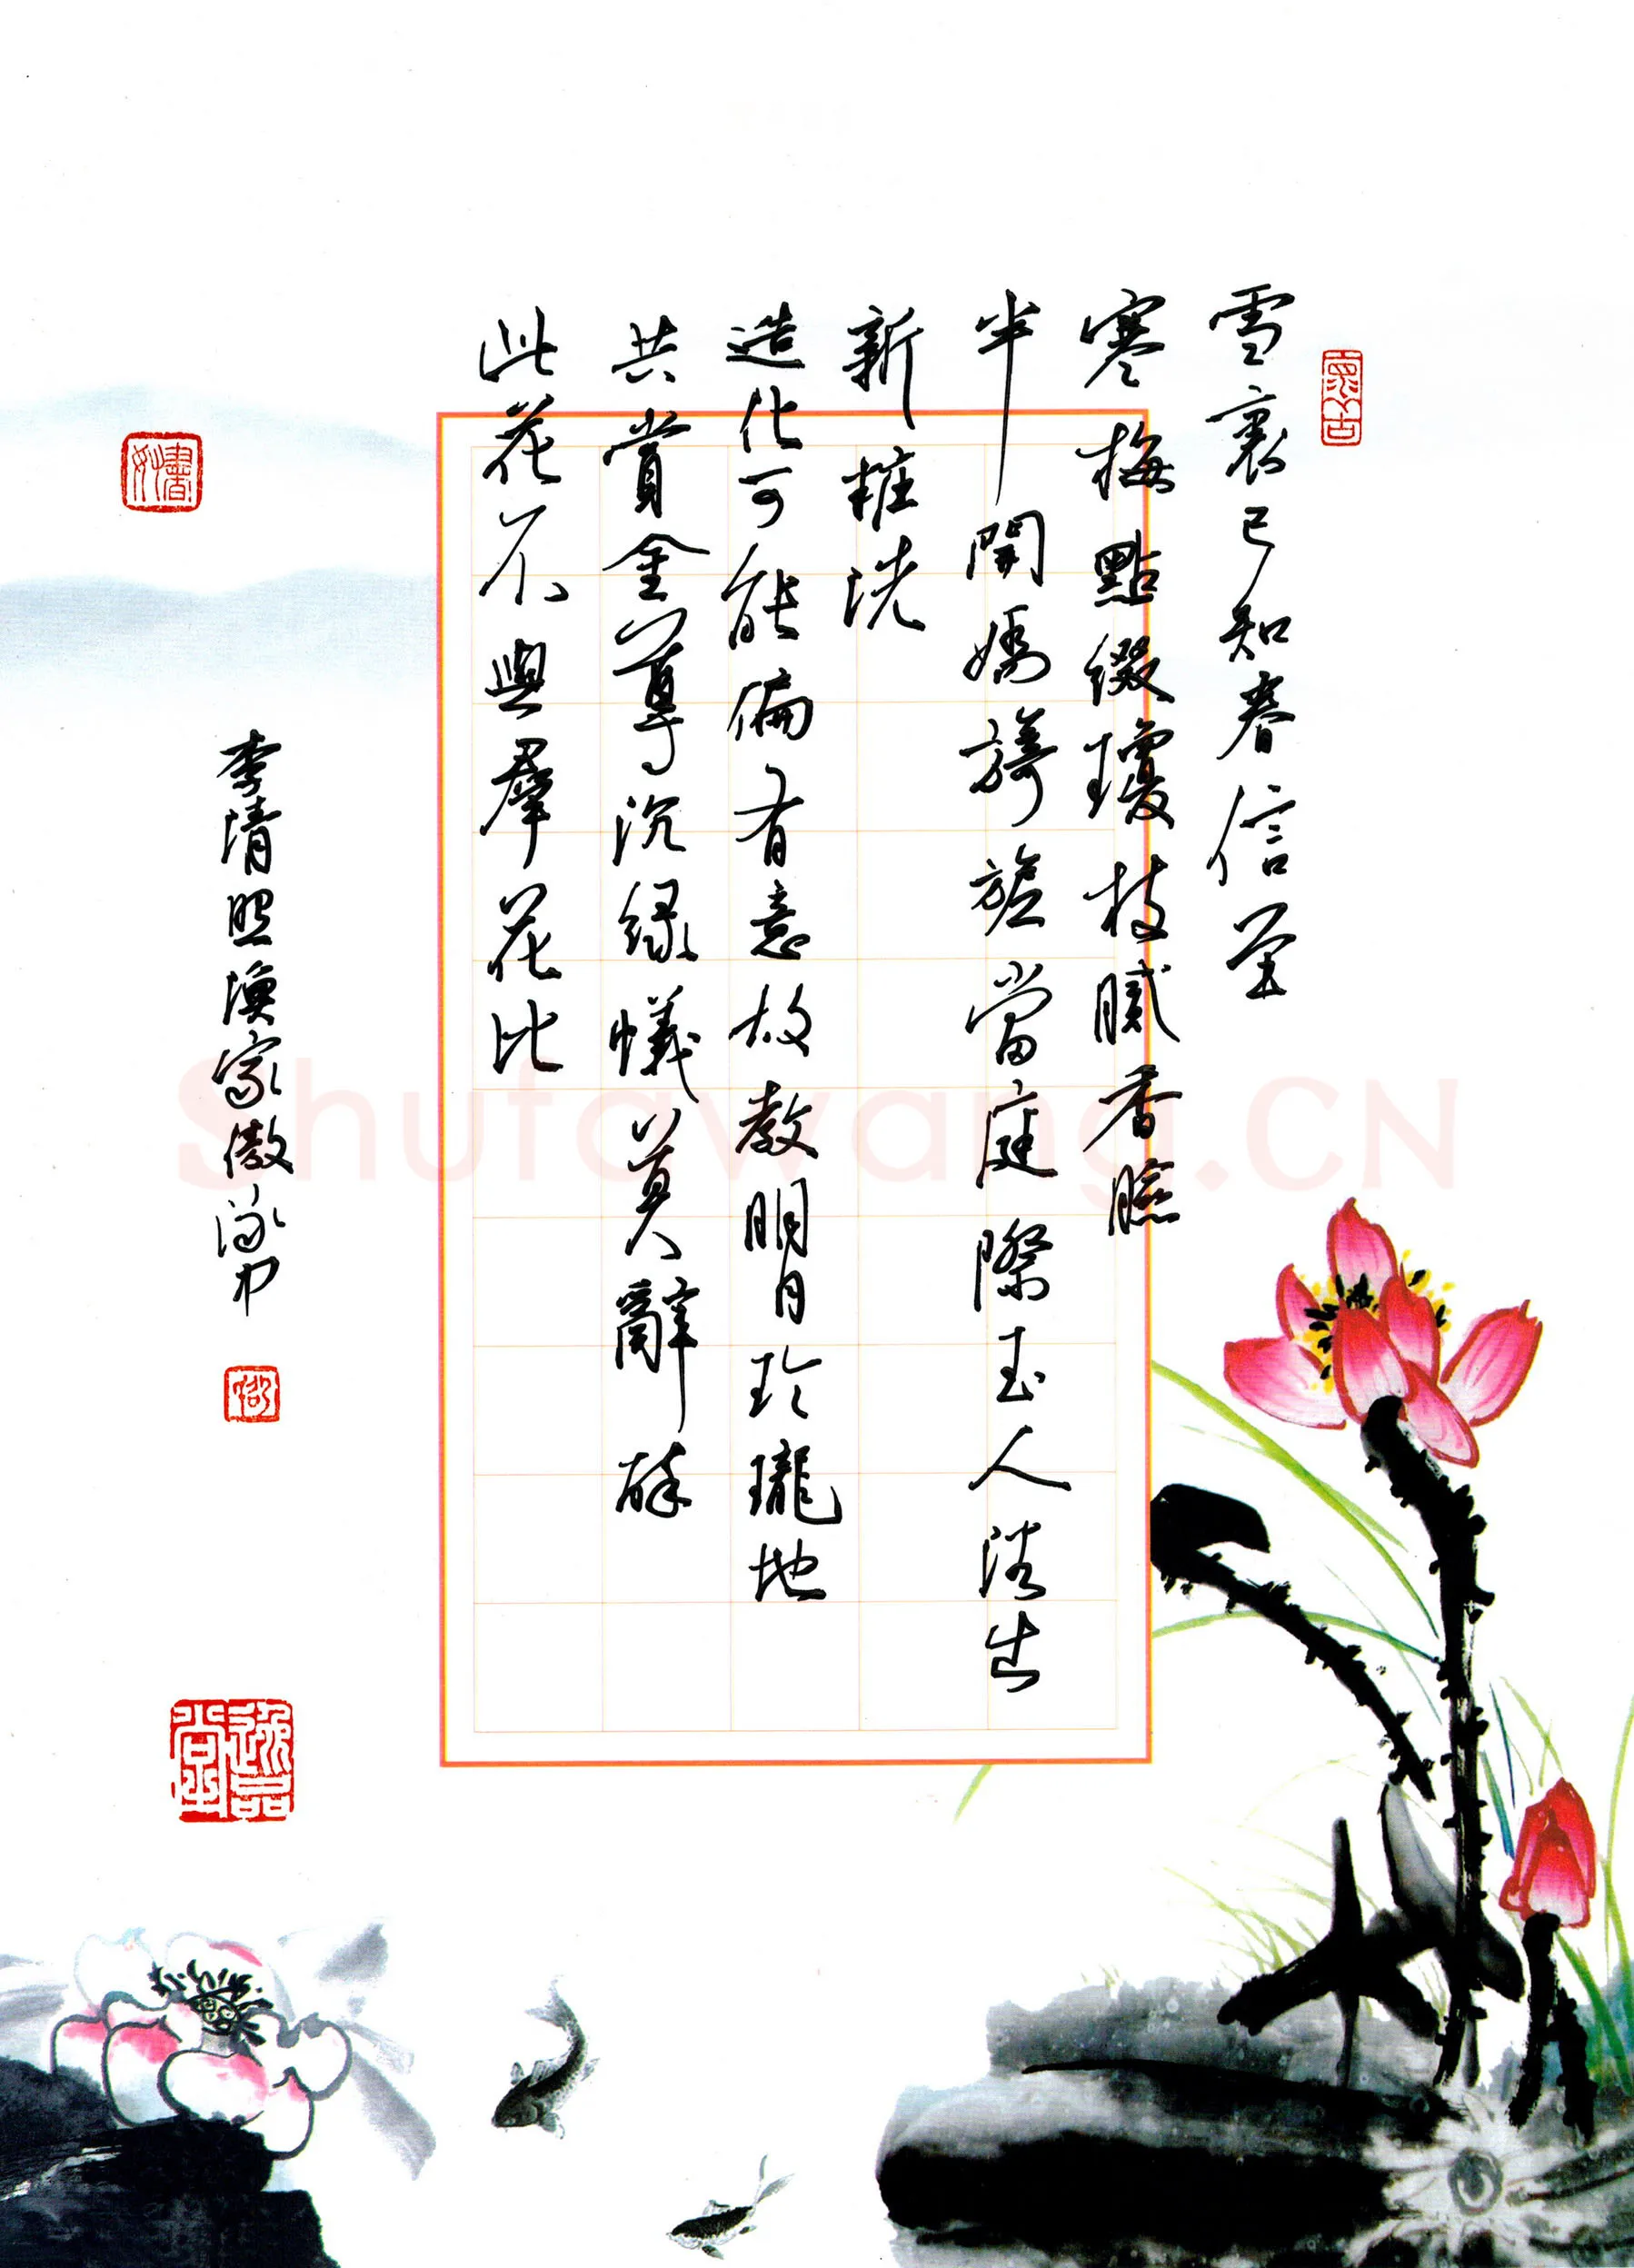 雪裏已知春信至
寒梅點綴瓊枝膩香臉
半開嬌旖旎當庭際玉人浴出
新粧洗
造化可能偏有意故教明月玲瓏地
共賞金尊沉綠蟻莫辭醉
此花不與羣花比
李清照漁家傲詠
Shufawang.CN
逸品堂